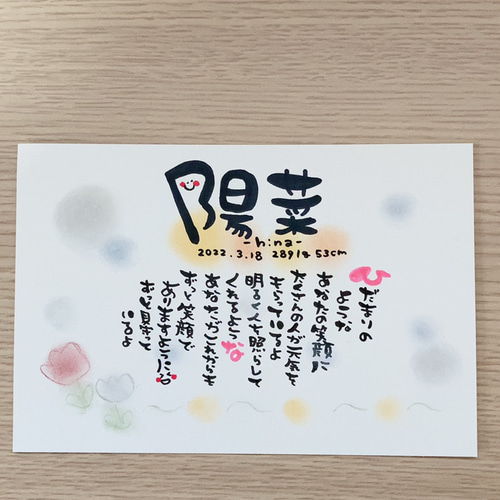 陽菜
-hina-
2022.3.18 2891g 53cm
ひだまりの
ような
あなたの笑顔に
たくさんの人が元気を
もらっているよ
明るく人を照らして
くれるような
あなたがこれからも
ずっと笑顔で
ありますように
ずっと見守って
いるよ